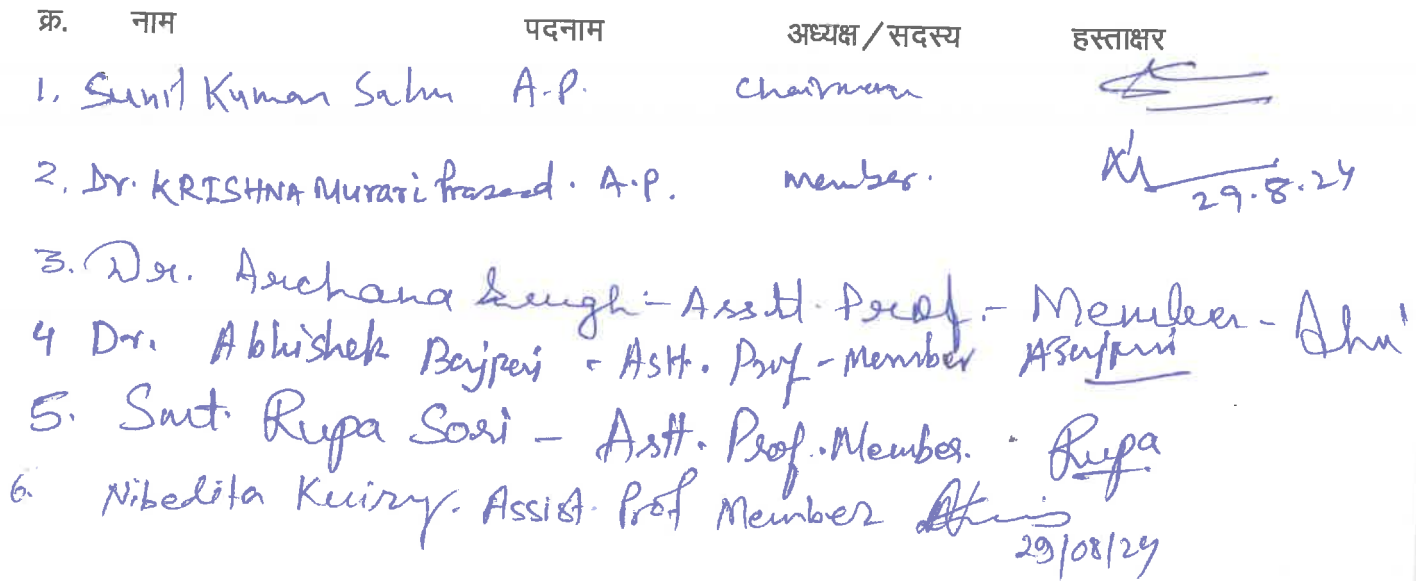 क्र. नाम पदनाम अध्यक्ष/सदस्य हस्ताक्षर
1. Sunil Kumar Sahu A.P. Chairman
2. Dr. KRISHNA Murari Prasad. A.P. member. 29.8.24
3. Dr. Archana Singh - Asstt. Prof. - Member -
4 Dr. Abhishek Bajpai - Astt. Prof - Member ABajpai
5. Smt. Rupa Sori - Astt. Prof. Member. Rupa
6. Nibedita Kuiry. Assist. Prof Member
29/08/24